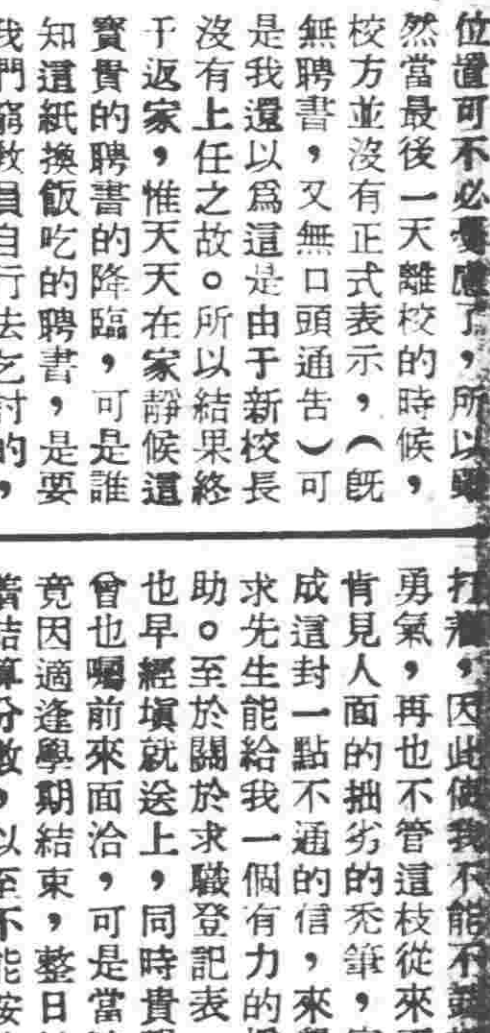 位置可不必憂慮了,所以雖
然當最後一天離校的時候,
校方並沒有正式表示,(既
無聘書,又無口頭通告)可
是我還以爲這是由于新校長
沒有上任之故。所以結果終
于返家,惟天天在家靜候這
寶貴的聘書的降臨,可是誰
知這紙換飯吃的聘書,是要
我們窮教員自行去乞討的,
打着,因此使我不能不鼓
勇氣,再也不管這枝從來
肯見人面的拙劣的禿筆,
成這封一點不通的信,來
求先生能給我一個有力的
助。至於關於求職登記表
也早經塡就送上,同時貴
曾也囑前來面洽,可是當
竟因適逢學期結束,整日
着結算分數,以至不能按